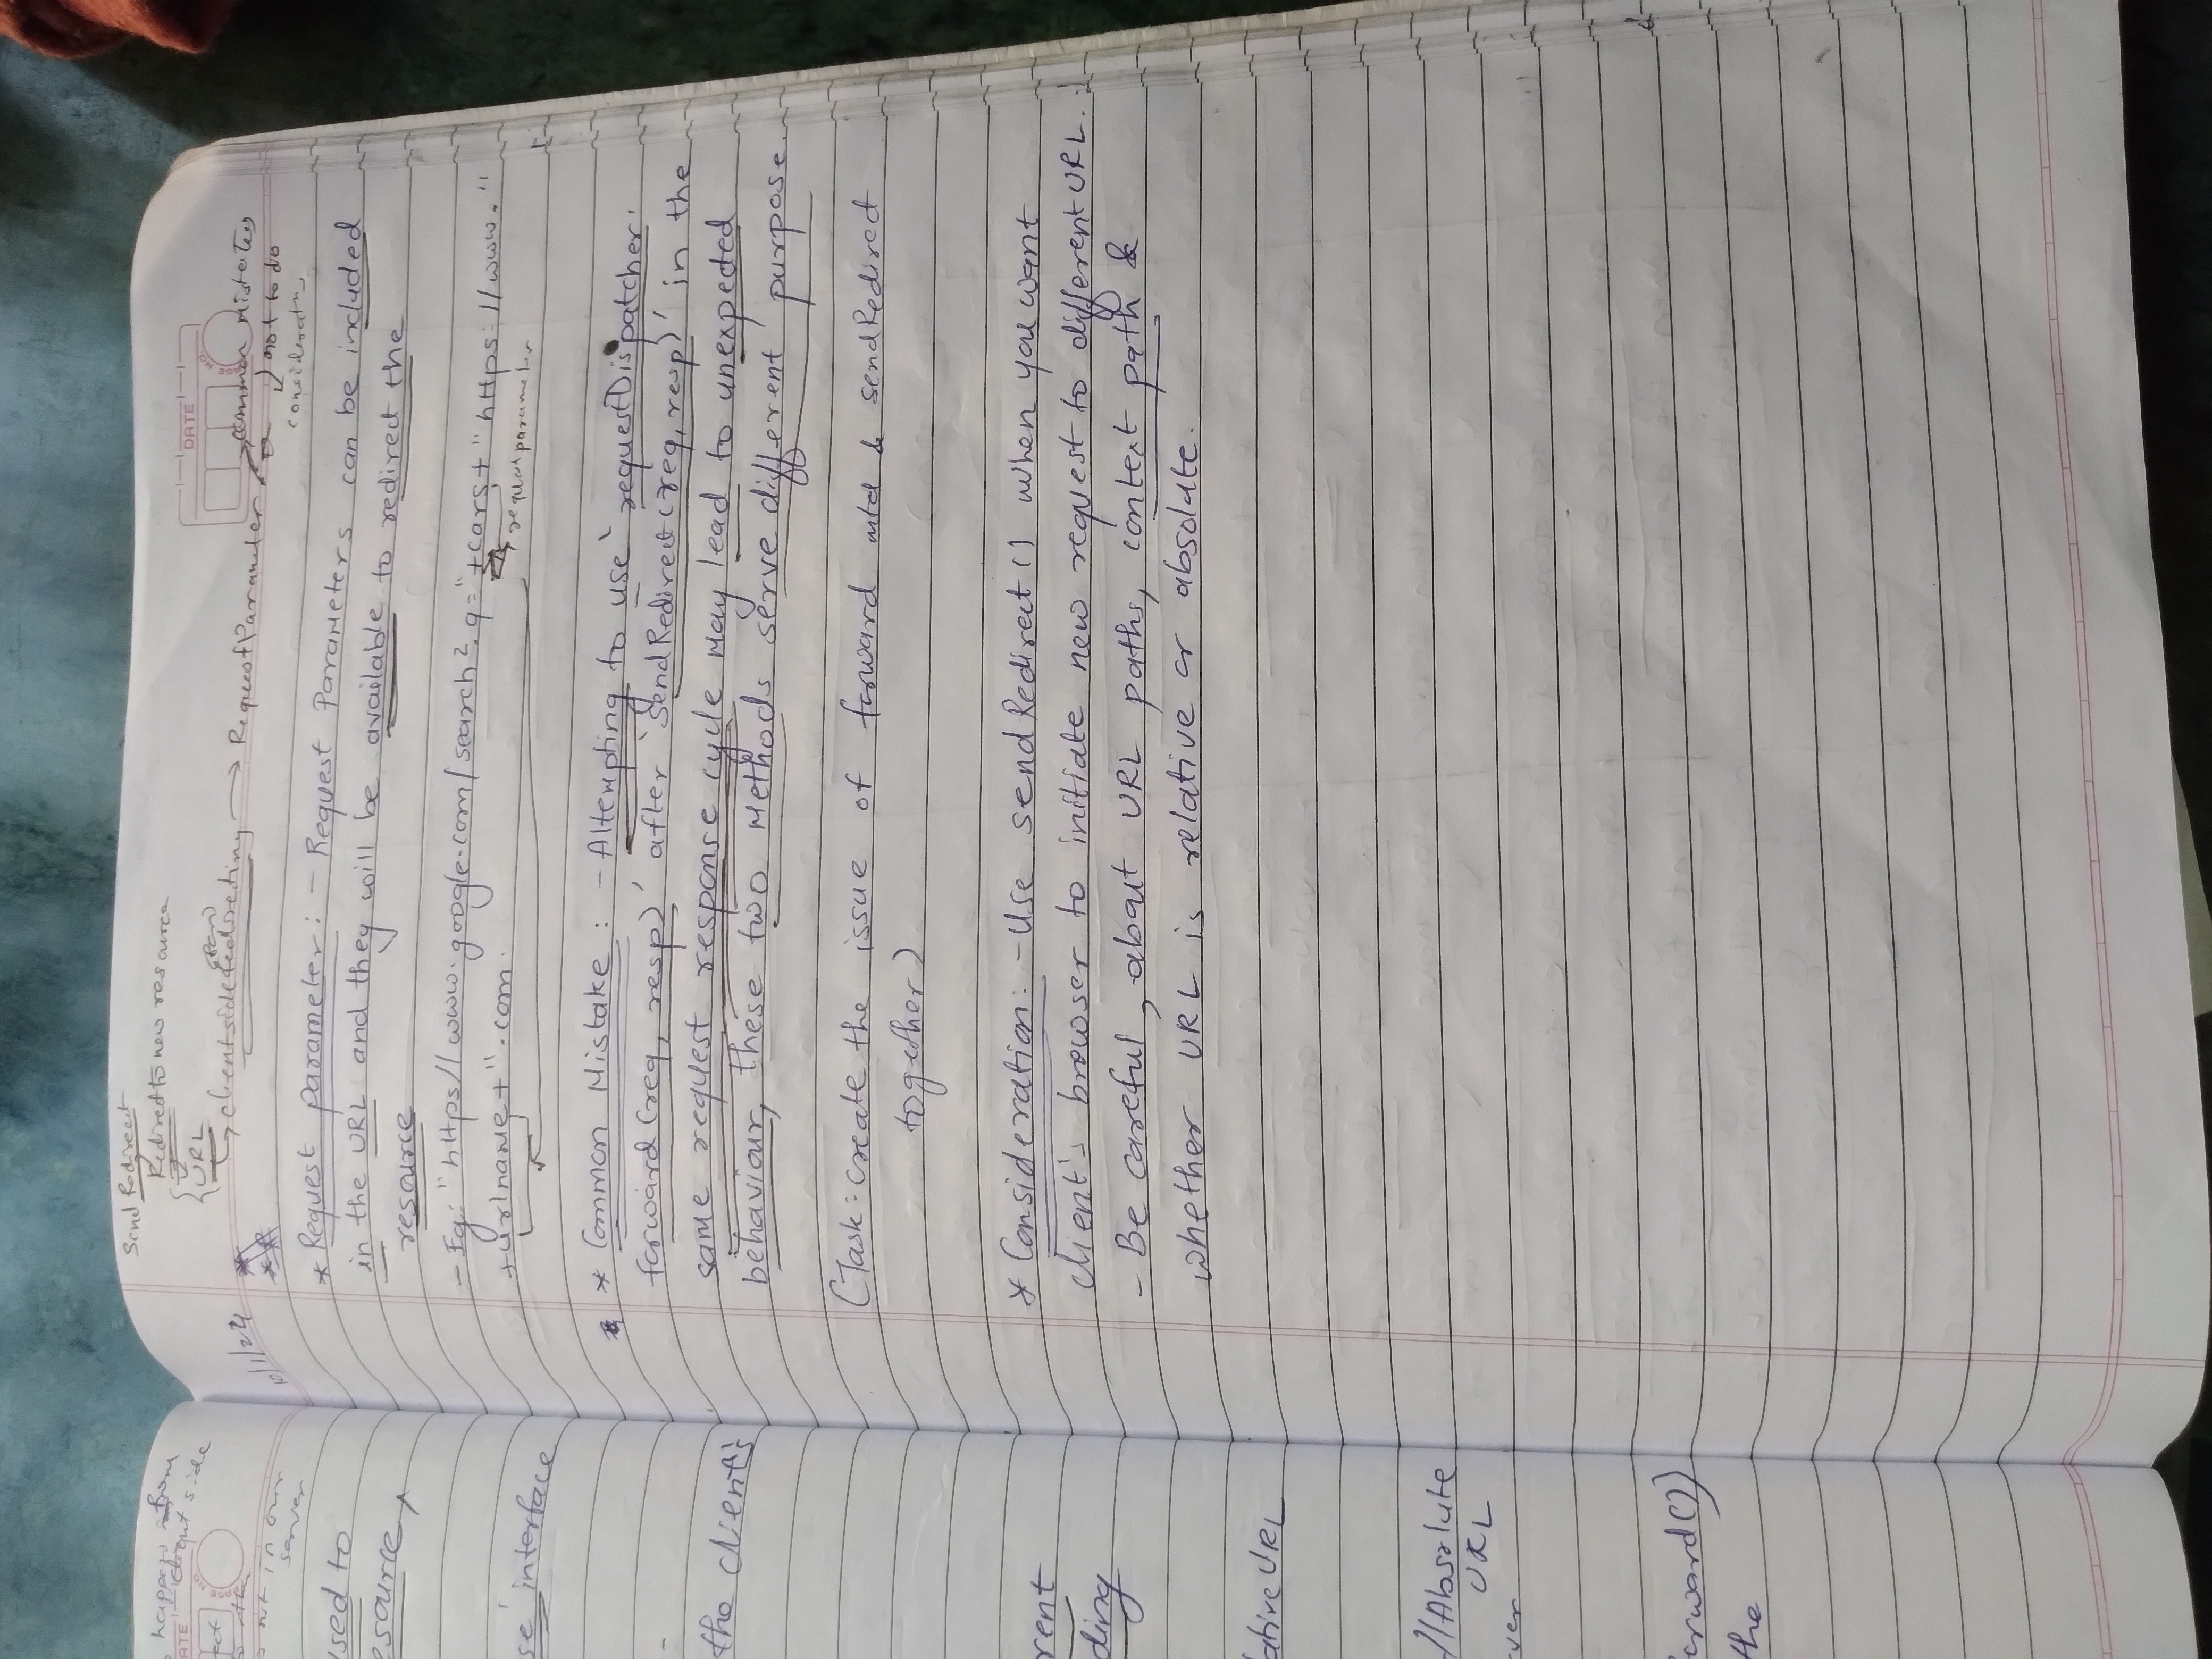 happens from
client side
DATE
ect
not in our
server
sed to
esource,
se' interface
the client's
rent
ding
ative URL
//Absolute
URL
ver
orward())
the
Send Redirect
Redirect to new resource
URL
client side redirecting → Request Parameter
common mistakes
not to do
DATE
10/1/24
* Request parameter : - Request Parameters can be included
in the URL and they will be available to redirect the
resource
- Eg: "https// www.google.com/search?q="+cars+"https://www."
+urlname+".com.
request parameter
* Common Mistake : - Attempting to use `requestDispatcher.
forward(req, resp)' after `sendRedirect(req, resp)' in the
same request response cycle may lead to unexpected
behaviour, these two methods serve different purpose.
(Task: create the issue of forward mtd & sendRedirect
together)
* Consideration: - Use sendRedirect() when you want
client's browser to initiate new request to different URL.
- Be careful, about URL paths, context path &
whether URL is relative or absolute.